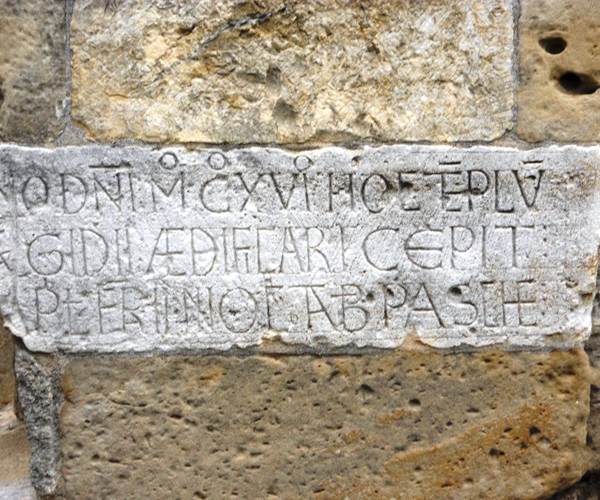 O DNI M CXVI HOC TEPLU
GIDII ÆDIFICARI CEPIT
PETRI IN OCTAB PASCHE